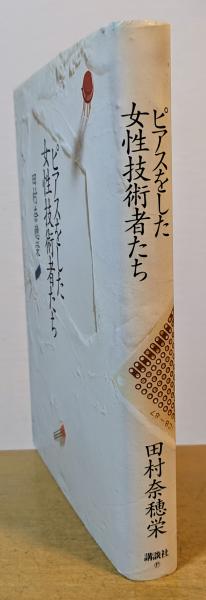 ピアスをした
女性技術者たち
田村奈穂栄
ピアスをした
女性技術者たち
田村奈穂栄
講談社